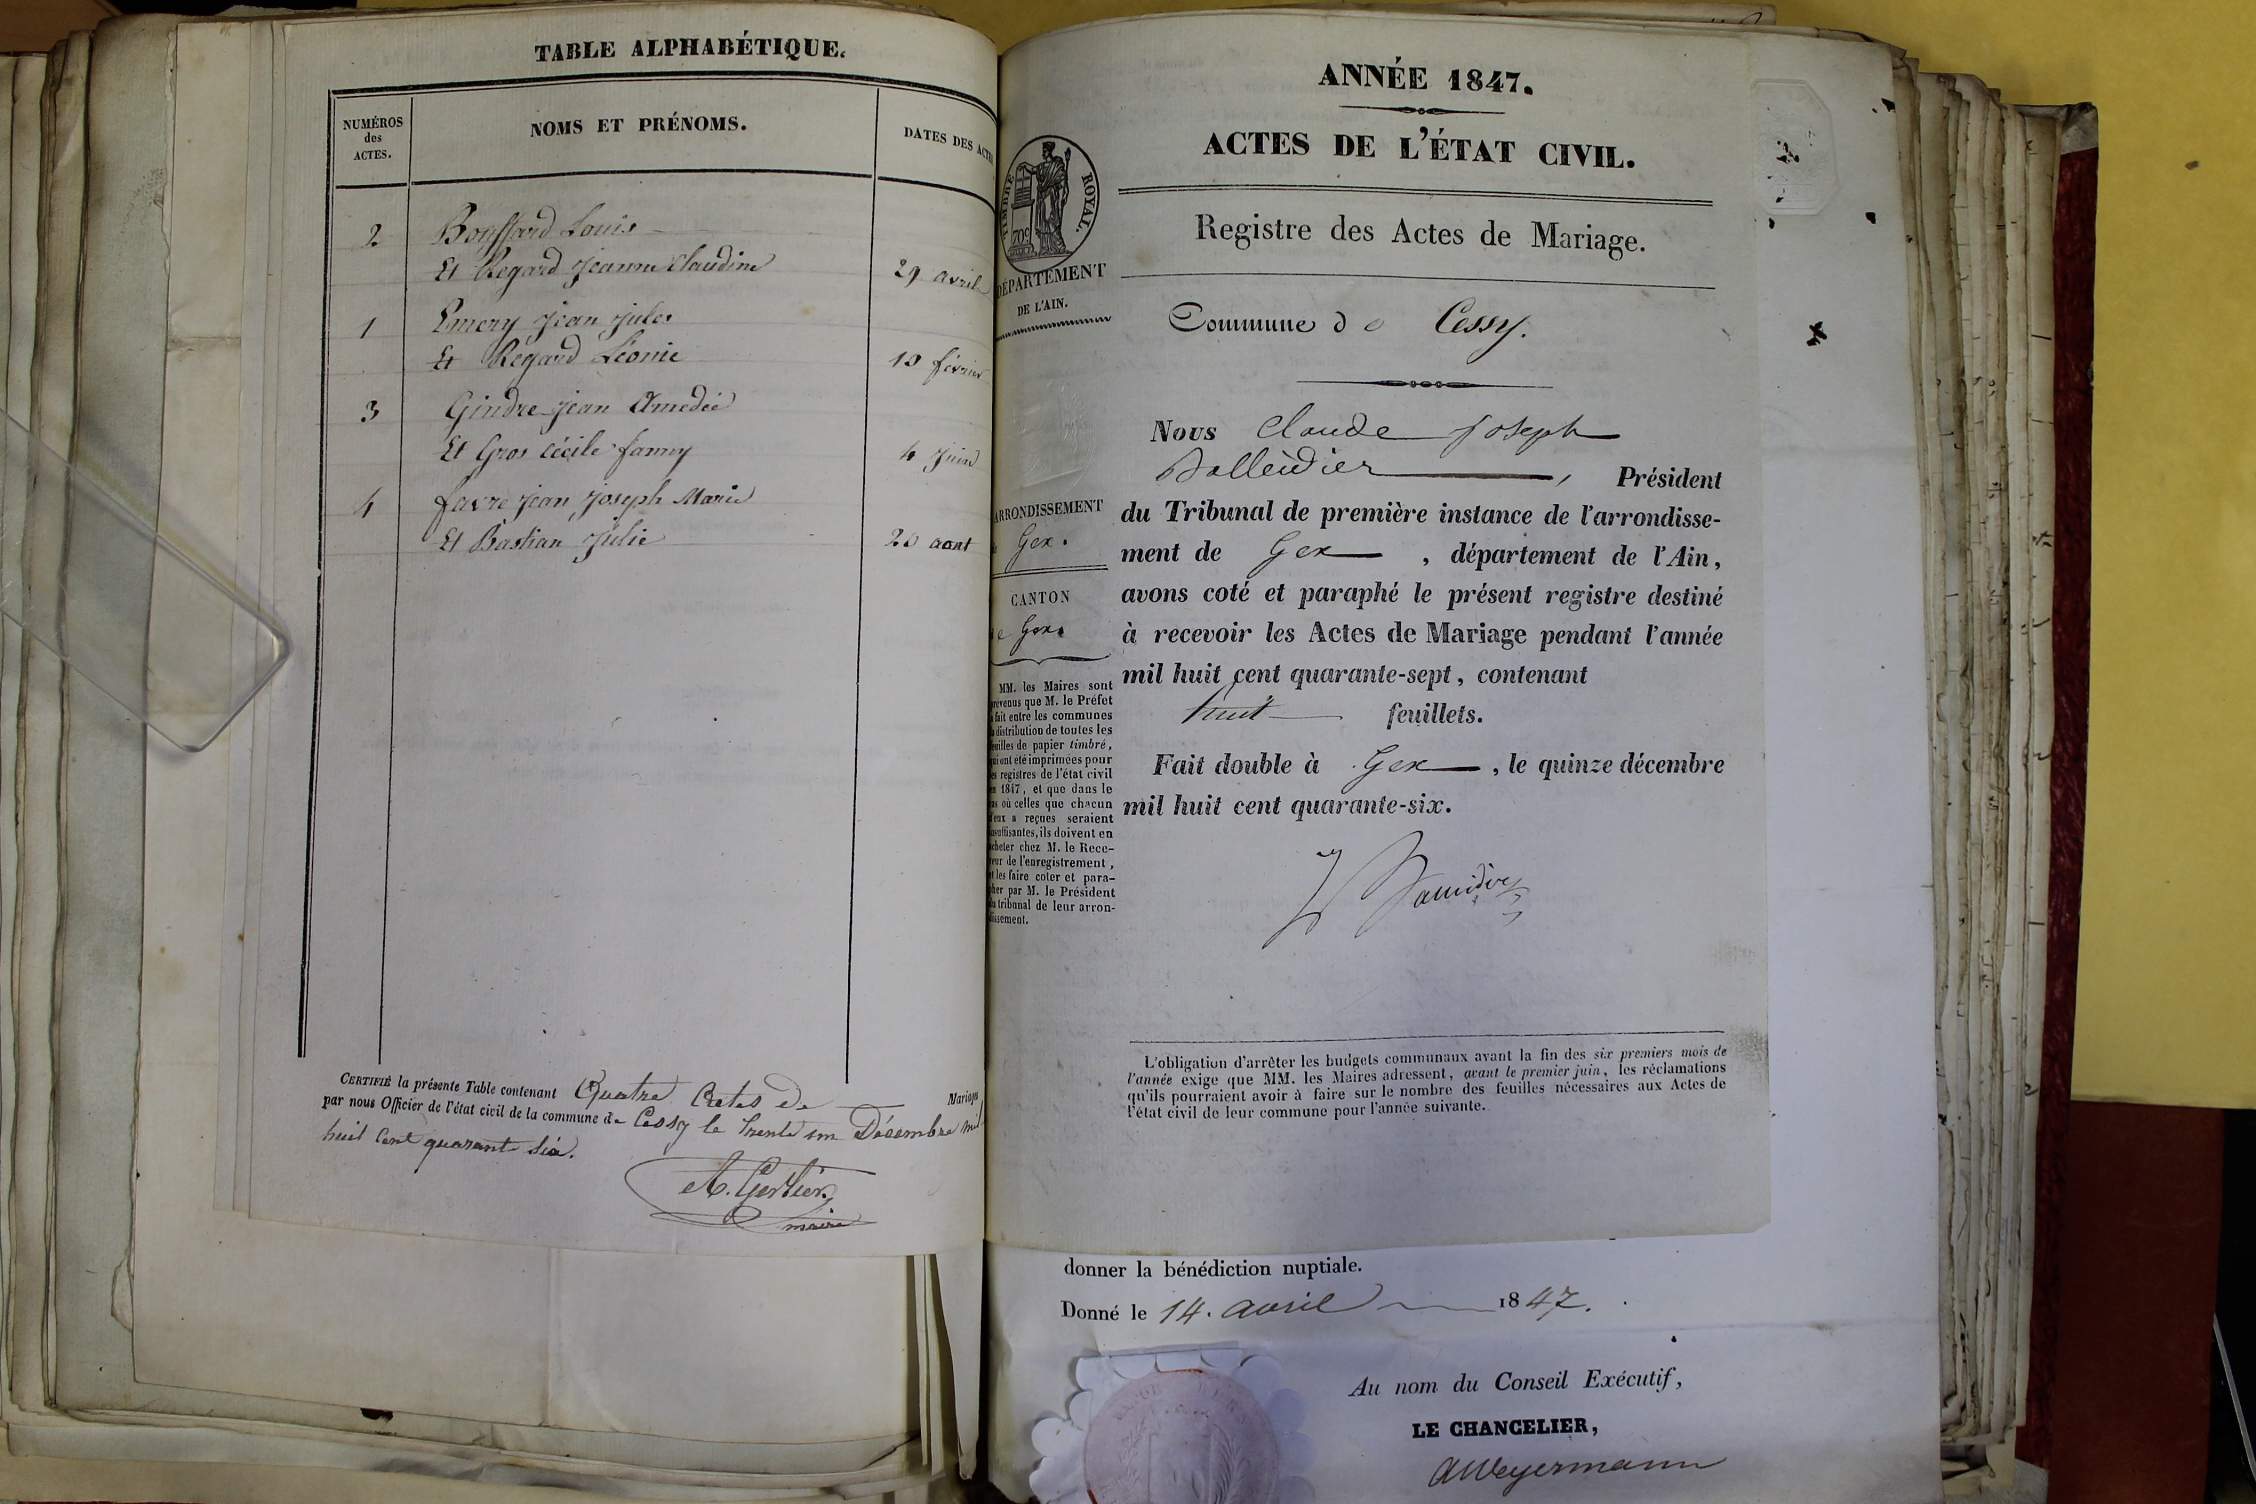 TABLE ALPHABÉTIQUE.
NUMÉROS
des
ACTES.
NOMS ET PRÉNOMS.
DATES DES ACTES
2 Bouffard Louis
Et Regard Jeanne Claudine 29 avril
1 Emery Jean Jules
Et Regard Léonie 10 février
3 Gindre Jean Amedée
Et Gros Cécile fanny 4 Juin
4 favre Jean Joseph Marie
Et Bastian Julie 20 aout
CERTIFIÉ la présente Table contenant Quatre Actes de Mariage
par nous Officier de l'état civil de la commune de Cessy le trente un Décembre mil
huit Cent quarant Six.
A. Gerlier
maire
ANNÉE 1847.
ACTES DE L'ÉTAT CIVIL.
Registre des Actes de Mariage.
TIMBRE ROYAL.
70c
DÉPARTEMENT
DE L'AIN.
Commune de Cessy.
ARRONDISSEMENT
Gex.
CANTON
de Gex.
MM. les Maires sont
prévenus que M. le Préfet
a fait entre les communes
la distribution de toutes les
feuilles de papier timbré,
qui ont été imprimées pour
les registres de l'état civil
en 1847, et que dans le
cas où celles que chacun
d'eux a reçues seraient
insuffisantes, ils doivent en
acheter chez M. le Rece-
veur de l'enregistrement,
et les faire coter et para-
pher par M. le Président
du tribunal de leur arron-
dissement.
Nous Claude Joseph
Balleidier, Président
du Tribunal de première instance de l'arrondisse-
ment de Gex, département de l'Ain,
avons coté et paraphé le présent registre destiné
à recevoir les Actes de Mariage pendant l'année
mil huit cent quarante-sept, contenant
huit feuillets.
Fait double à Gex, le quinze décembre
mil huit cent quarante-six.
L'obligation d'arrêter les budgets communaux avant la fin des six premiers mois de
l'année exige que MM. les Maires adressent, avant le premier juin, les réclamations
qu'ils pourraient avoir à faire sur le nombre des feuilles nécessaires aux Actes de
l'état civil de leur commune pour l'année suivante.
donner la bénédiction nuptiale.
Donné le 14. avril 1847.
Au nom du Conseil Exécutif,
LE CHANCELIER,
AWeyermann